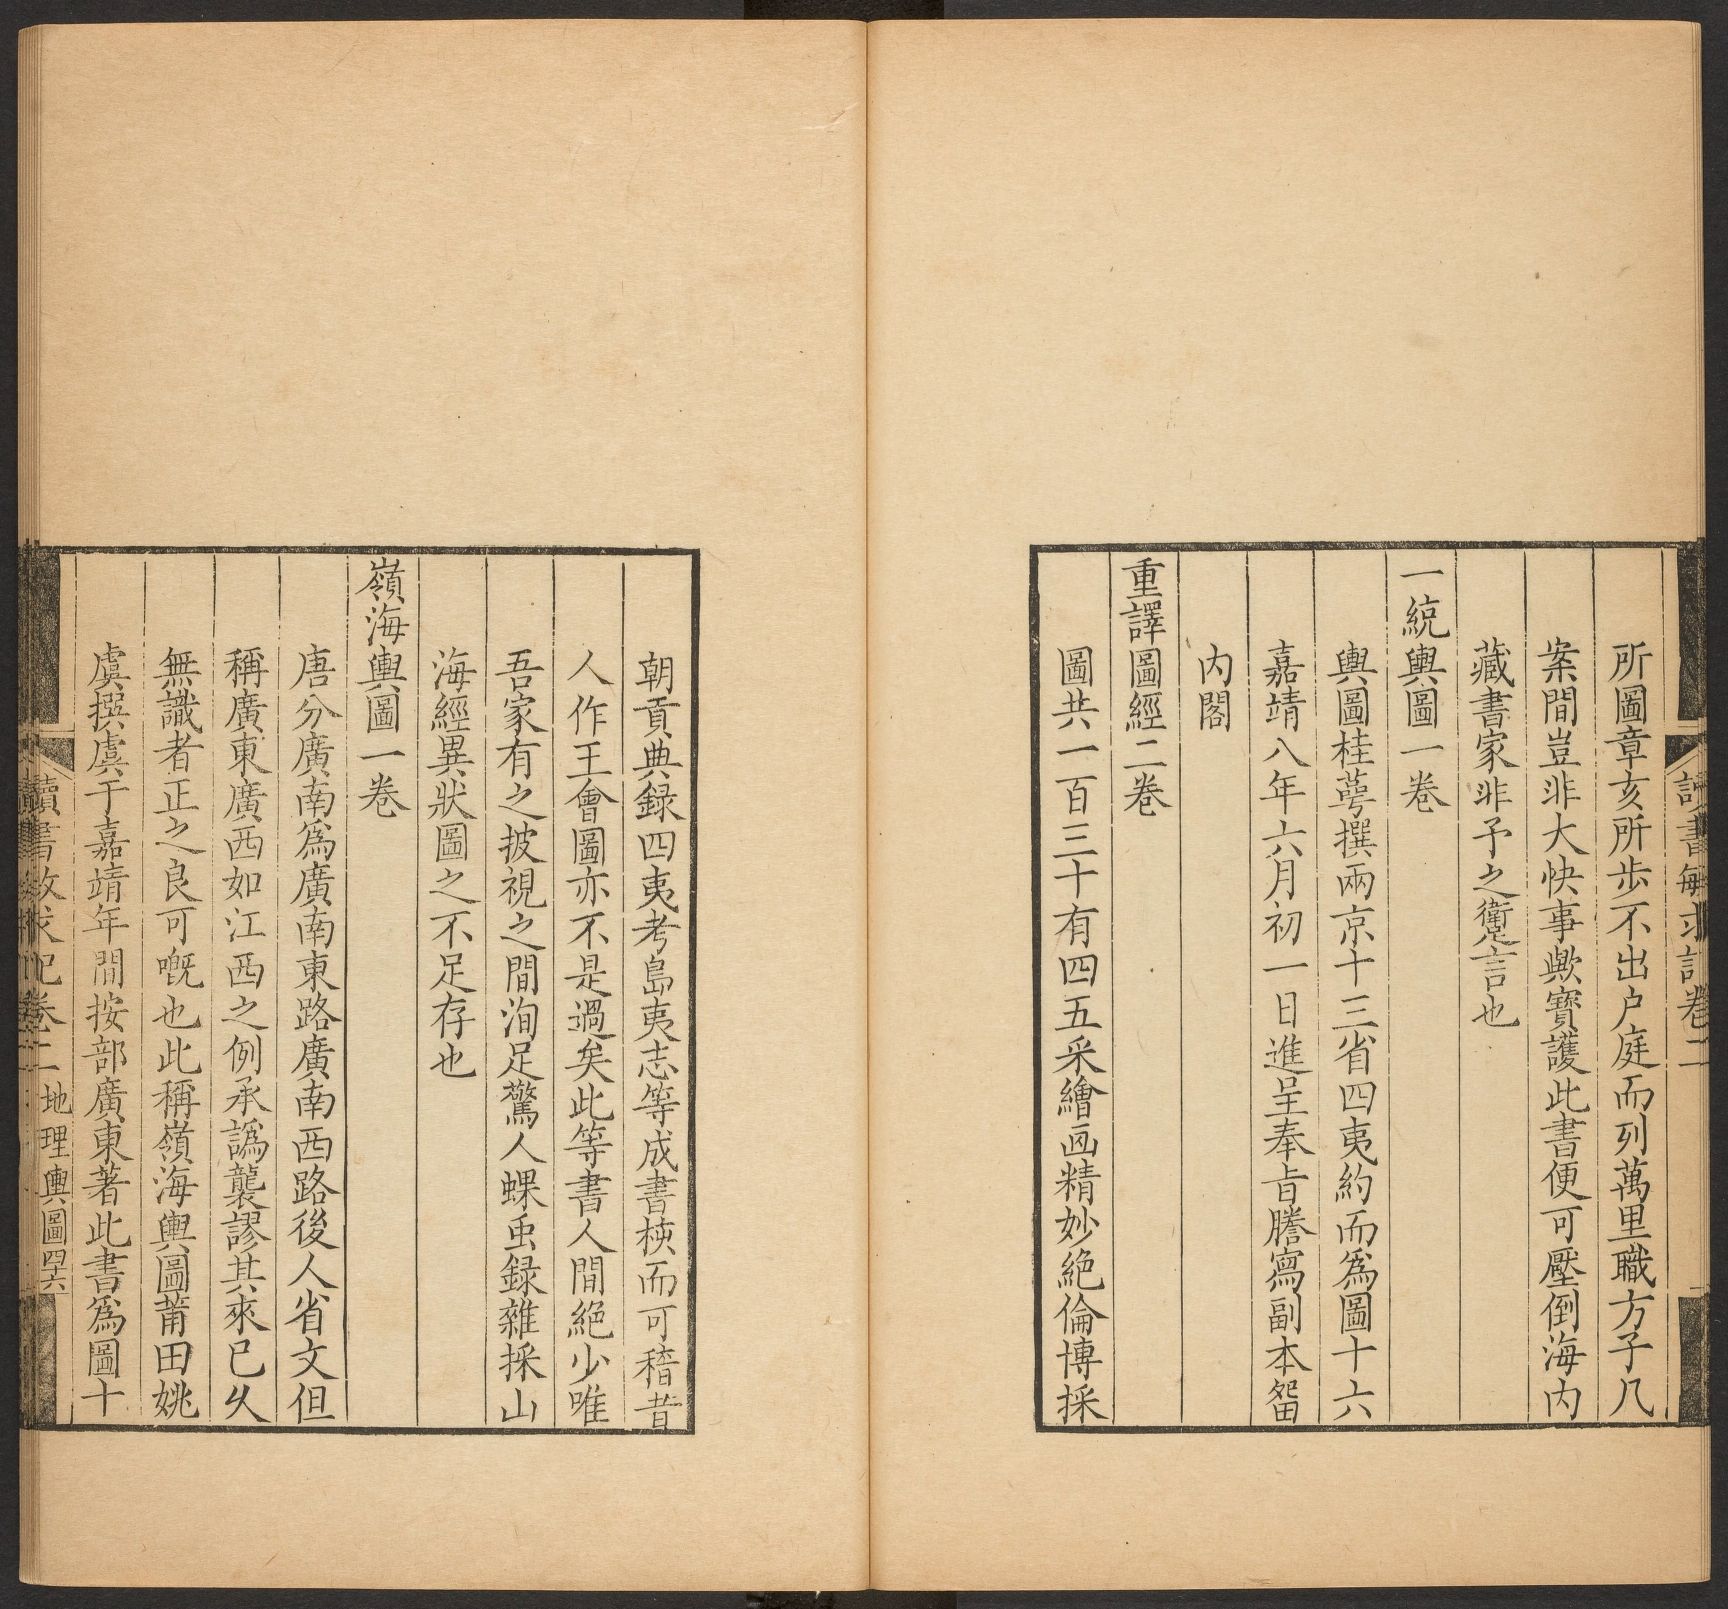 所圖章亥所步不出户庭而列萬里職方子几
案間豈非大快事歟寳護此書便可壓倒海内
藏書家非予之躗言也
一統輿圖一卷
輿圖桂萼撰兩京十三省四夷約而爲圖十六
嘉靖八年六月初一日進呈奉旨謄寫副本畱
内閣
重譯圖經二卷
圖共一百三十有四五采繪画精妙絶倫博採
朝貢典録四夷考島夷志等成書核而可稽昔
人作王會圖亦不是過矣此等書人間絶少唯
吾家有之披視之間洵足驚人蜾虫録雜採山
海經異狀圖之不足存也
嶺海輿圖一卷
唐分廣南爲廣南東路廣南西路後人省文但
稱廣東廣西如江西之例承譌襲謬其來已久
無識者正之良可嘅也此稱嶺海輿圖莆田姚
虞撰虞于嘉靖年間按部廣東著此書爲圖十
讀書敏求記卷二 地理輿圖 四六